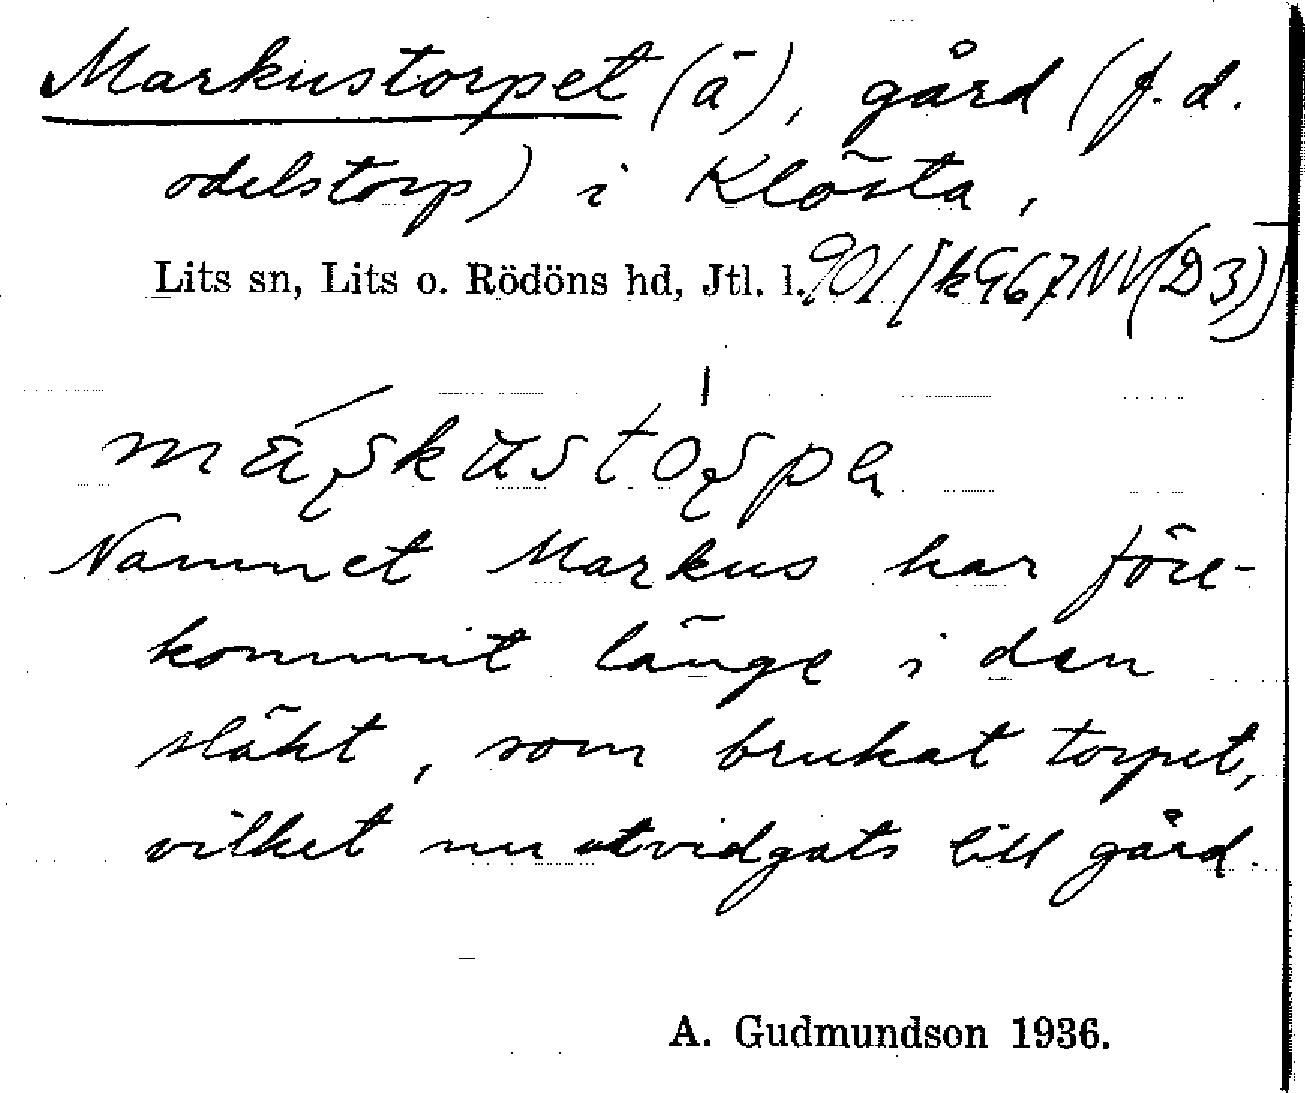 Markustorpet (ä), gård (f.d.
odelstorp) i Klösta,
Lits sn, Lits o. Rödöns hd, Jtl. l. 901 [k967NV(D3)]
Namnet Markus har före-
kommit länge i den
släkt, som brukat torpet,
vilket nu utvidgats till gård.
A. Gudmundson 1936.